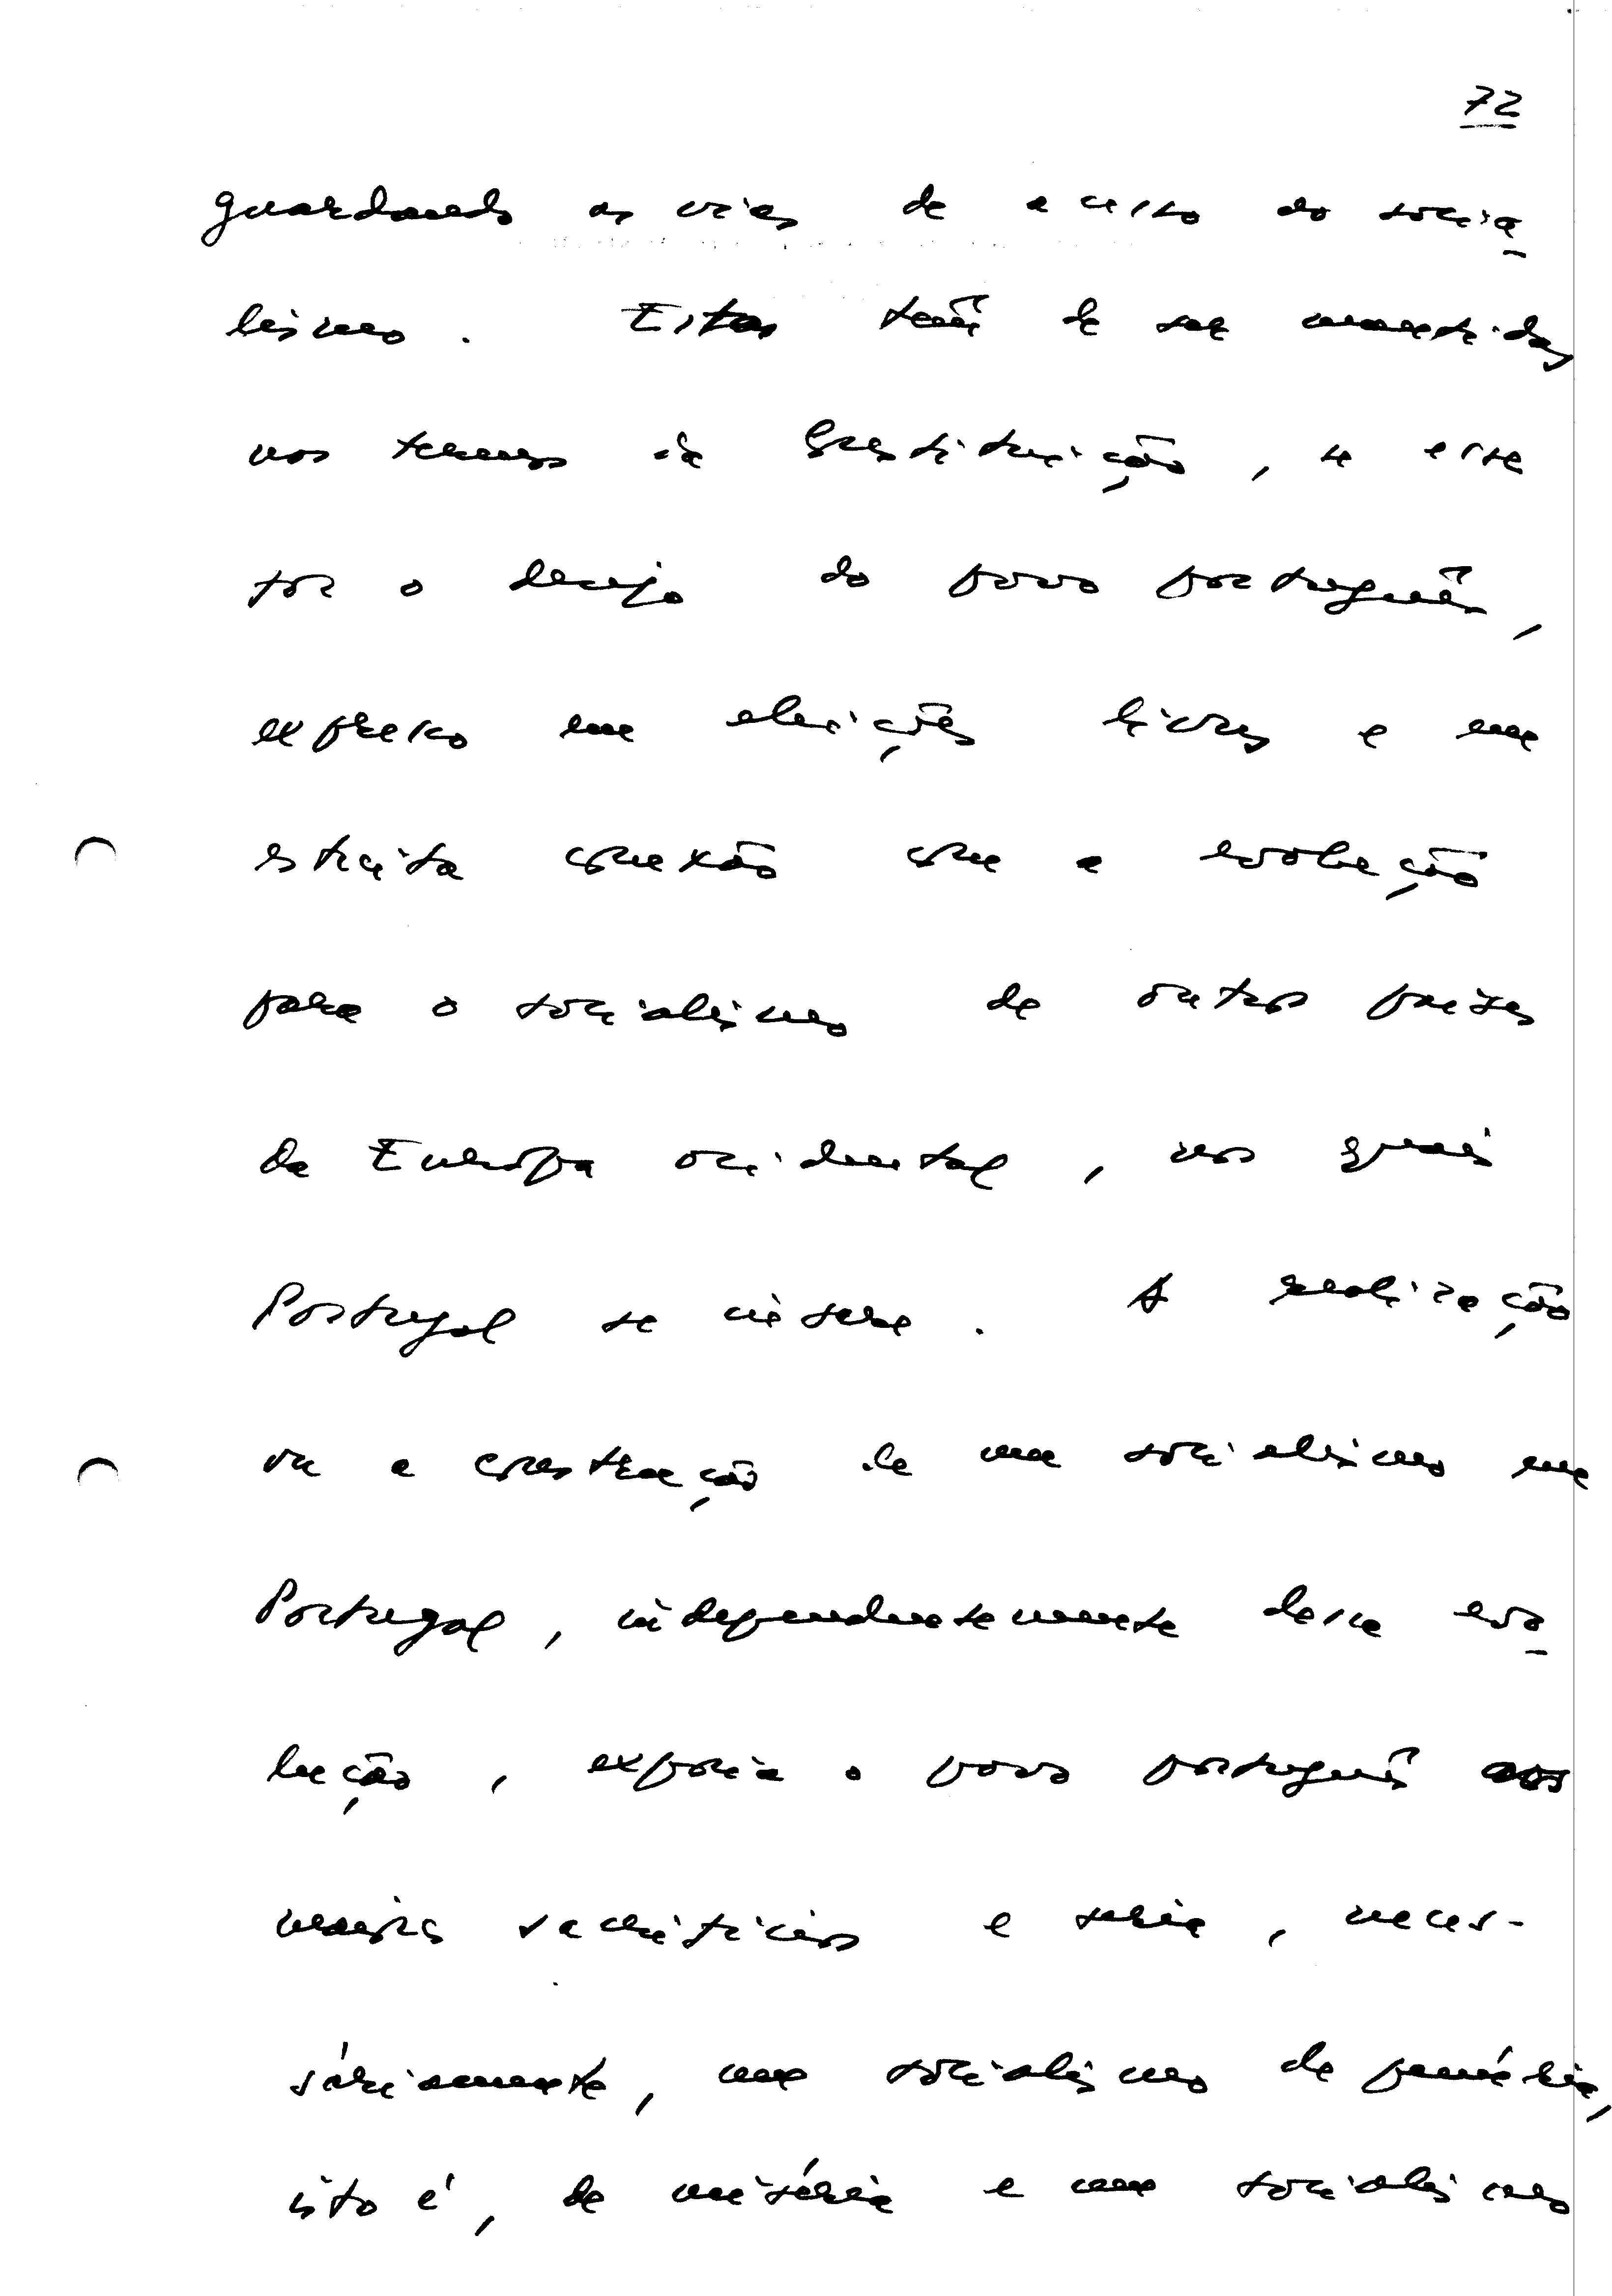 72
guardando as vias de acesso do socia
lismo. Estas têm de ser mantidas
nos termos da Constituição, se esse
for o desejo do povo português,
expresso em eleições livres e em
estreita conexão com a evolução
para o socialismo de outros países
da Europa ocidental, nos quais
Portugal se insere. A realização
ou a construção de um socialismo em
Portugal, independentemente dessa evo
lução, exporia o povo português aos
maiores sacrifícios e seria, neces-
sáriamente, um socialismo de penúria,
isto é, de miséria e um socialismo